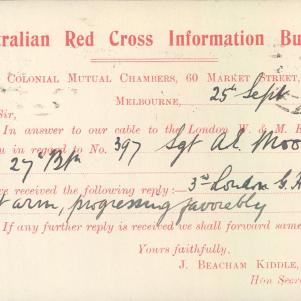 tralian Red Cross Information Bu
COLONIAL MUTUAL CHAMBERS, 60 MARKET STREET,
MELBOURNE, 25th Sept
Sir,
In answer to our cable to the London W. & M. B
u in regard to No. 397 Sgt A. Moo
27th Btn
ve received the following reply:— 3rd London G. H
t arm, progressing favorably
If any further reply is received we shall forward same
Yours faithfully,
J. BEACHAM KIDDLE,
Hon Secre